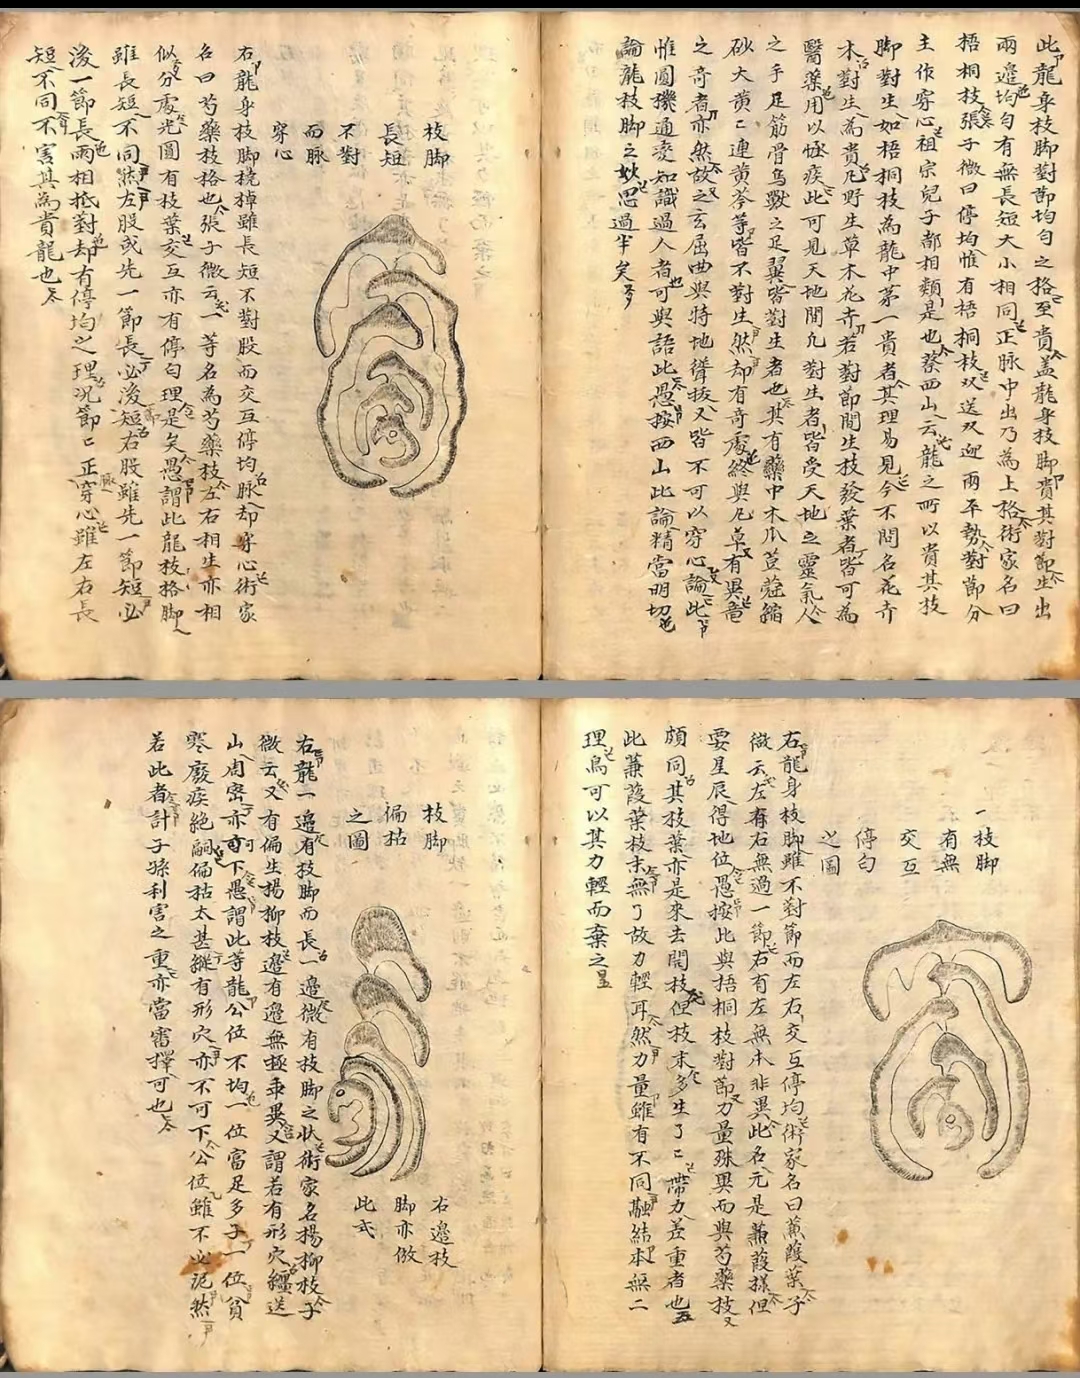 此龍身枝脚對節均勻之格至貴盖龍身枝脚貴其對節生出
兩邉均勻有無長短大小相同正脉中出乃為上格術家名曰
梧桐枝張子微曰停均惟有梧桐枝双送双迎兩平勢對節分
主作穿心祖宗兒子都相類是也蔡西山云龍之所以貴其枝
脚對生如梧桐枝為龍中第一貴者其理易見今不問名花卉
木對生為貴凡野生草木花卉若對節間生枝發葉者皆可為
醫藥用以愈疾此可見天地間凡對生者皆受天地之靈氣人
之手足筋骨鳥獸之足翼皆對生者也其有藥中木瓜荳蔲縮
砂大黄黄連黄芩等皆不對生然却有奇處終與凡草有異竜
之奇者亦然故之玄屈曲與特地聳抜又皆不可以穿心論此
惟圓機通变知識過人者可與語此愚按西山此論精當明切
論龍枝脚之妙思過半矣
枝脚
長短
不對
而脈
穿心
右龍身枝脚橈棹雖長短不對股而交互停均脉却穿心術家
名曰芍藥枝格也張子微云一等名為芍藥枝左右相生亦相
似分處光圓有枝葉交互亦有停勻理是矣愚謂此龍枝格脚
雖長短不同然左股或先一節長必後短右股雖先一節短必
後一節長兩相抵對却有停均之理况節〻正穿心雖左右長
短不同不害其為貴龍也
一枝脚
有無
交互
停勻
之圖
右龍身枝脚雖不對節而左右交互停均術家名曰蒹葭葉子
微云左有右無過一節右有左無本非異此名元是蒹葭樣但
要星辰得地位愚按此與梧桐枝對節力量殊異而與芍藥枝
頗同其枝葉亦是來去開枝但枝末多生了〻帶力差重者也
此蒹葭葉枝末無了故力輕耳然力量雖有不同融結本無二
理烏可以其力輕而棄之
枝脚
偏枯
之圖
右邉枝
脚亦倣
此式
右龍一邉有枝脚而長一邉微有枝脚之状術家名揚柳枝子
微云又有偏生揚柳枝邉有邉無極乖異又謂若有形穴纒送
山周密亦可下愚謂此等龍公位不均一位富足多子一位貧
寒廢疾絶嗣偏枯太甚縱有形穴亦不可下公位雖不必泥然
若此者計子孫利害之重亦當審擇可也